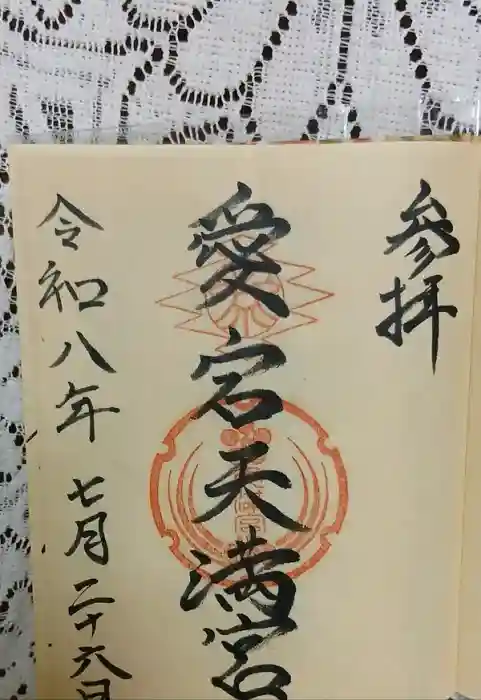 参拝
愛宕天満宮
令和八年 七月二十六日